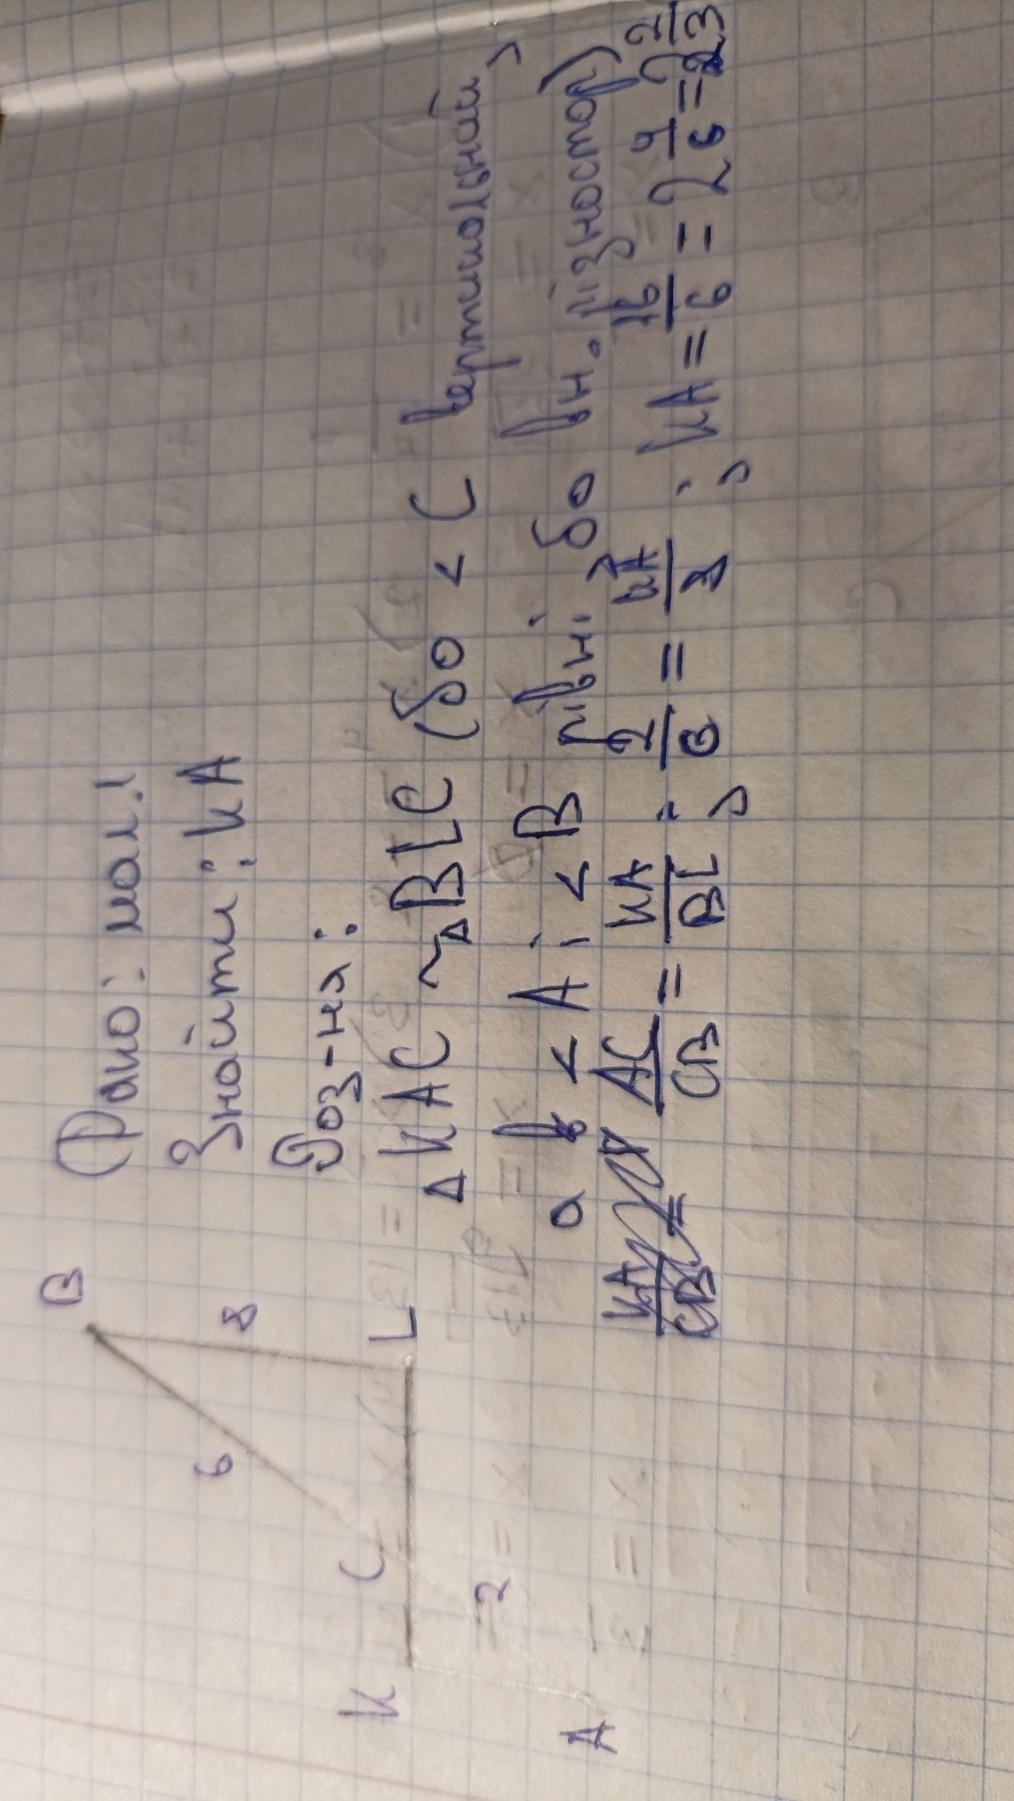 B
6
8
K
C
L
2
A
Дано: мал.1
Знайти: KA
Роз-ня:
△KAC ~ △BLC (бо < C вертикальний,
а < A і < B рівні бо вн. різност.)
AC/CB = KA/BL ; 2/6 = KA/8 ; KA = 16/6 = 2 4/6 = 2 2/3